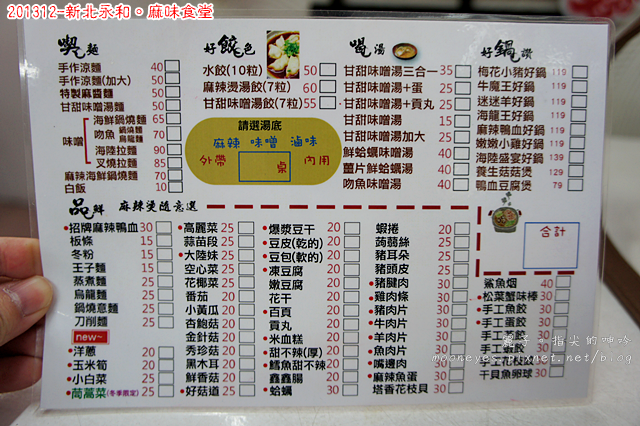 201312-新北永和。麻味食堂
喫麵
手作涼麵 40
手作涼麵(加大) 50
特製麻醬麵 50
甘甜味噌湯麵 50
味噌
海鮮鍋燒麵 65
吻魚 鍋燒麵 烏龍麵 65
海陸拉麵 90
叉燒拉麵 90
麻辣海鮮鍋燒麵
白飯 10
好餃色
水餃(10粒) 50
麻辣燙湯餃(7粒) 60
甘甜味噌湯餃(7粒) 55
請選湯底
麻辣 味噌 滷味
外帶 桌 內用
喝湯
甘甜味噌湯三合一 35
甘甜味噌湯+蛋
甘甜味噌湯+貢丸
甘甜味噌湯
甘甜味噌湯加大
鮮蛤蠣味噌湯
薑片鮮蛤蠣湯
吻魚味噌湯
好鍋讚
梅花小豬好鍋 119
牛魔王好鍋 119
迷迷羊好鍋 119
海龍王好鍋 119
麻辣鴨血好鍋 119
嫩嫩小雞好鍋 119
海陸盛宴好鍋
養生菇菇煲
鴨血豆腐煲
合計
品鮮 麻辣燙隨意選
招牌麻辣鴨血 30
板條 15
冬粉 15
王子麵 15
蒸煮麵
烏龍麵
鍋燒意麵
刀削麵
new~
洋蔥 20
玉米筍 20
小白菜 25
茼萵菜(冬季限定) 25
高麗菜 25
蒜苗段 25
大陸妹 25
空心菜 25
花椰菜 25
番茄 20
小黃瓜 20
杏鮑菇
金針菇
秀珍菇
黑木耳 20
鮮香菇
好菇道
爆漿豆干 20
豆皮(乾的) 20
豆包(軟的)
凍豆腐 20
嫩豆腐 20
花干 20
百頁 20
貢丸 20
米血糕 20
甜不辣(厚) 20
鱈魚甜不辣 20
鑫鑫腸 20
蛤蠣 30
蝦捲 20
蒟蒻絲 20
豬耳朵
豬頭皮
豬腱肉
雞肉條 30
豬肉片
牛肉片
羊肉片
魚肉片
嘴邊肉
麻辣魚蛋 30
塔香花枝貝 30
鯊魚烟 40
松葉蟹味棒 30
手工魚餃 30
手工蛋餃 30
手工
手工蝦餃
干貝魚卵球 30
指尖的呻吟
mooneyes.pixnet.net/blog